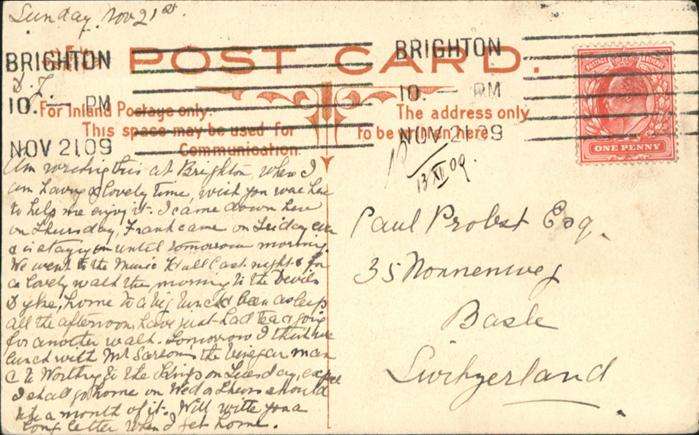 Sunday. Nov 21st.
BRIGHTON
10. — PM
NOV 21 09
BRIGHTON
10. PM
NOV 21 09
POST CARD.
For Inland Postage only.
This space may be used for
Communication.
The address only
to be written here.
ONE PENNY
13 XI 09.
Am writing this at Brighton, when I
am having a lovely time, wish you were here
to help me enjoy it. I came down here
on Thursday, Frank came on Friday eve
& is staying on until tomorrow morning.
We went to the Music Hall last night & for
a lovely walk this morning to the Devils
Dyke, home to a big lunch been asleep
all the afternoon, have just had tea & going
for another walk. Tomorrow I think we
lunch with Mr Sarsons the Vinegar man
& to Worthing to the on Tuesday, expect
I shall go home on Wed or Thurs should
like a month of it. Will write you a
long letter when I get home.
Paul Probst Esq.
35 Nonnenweg
Basle
Switzerland